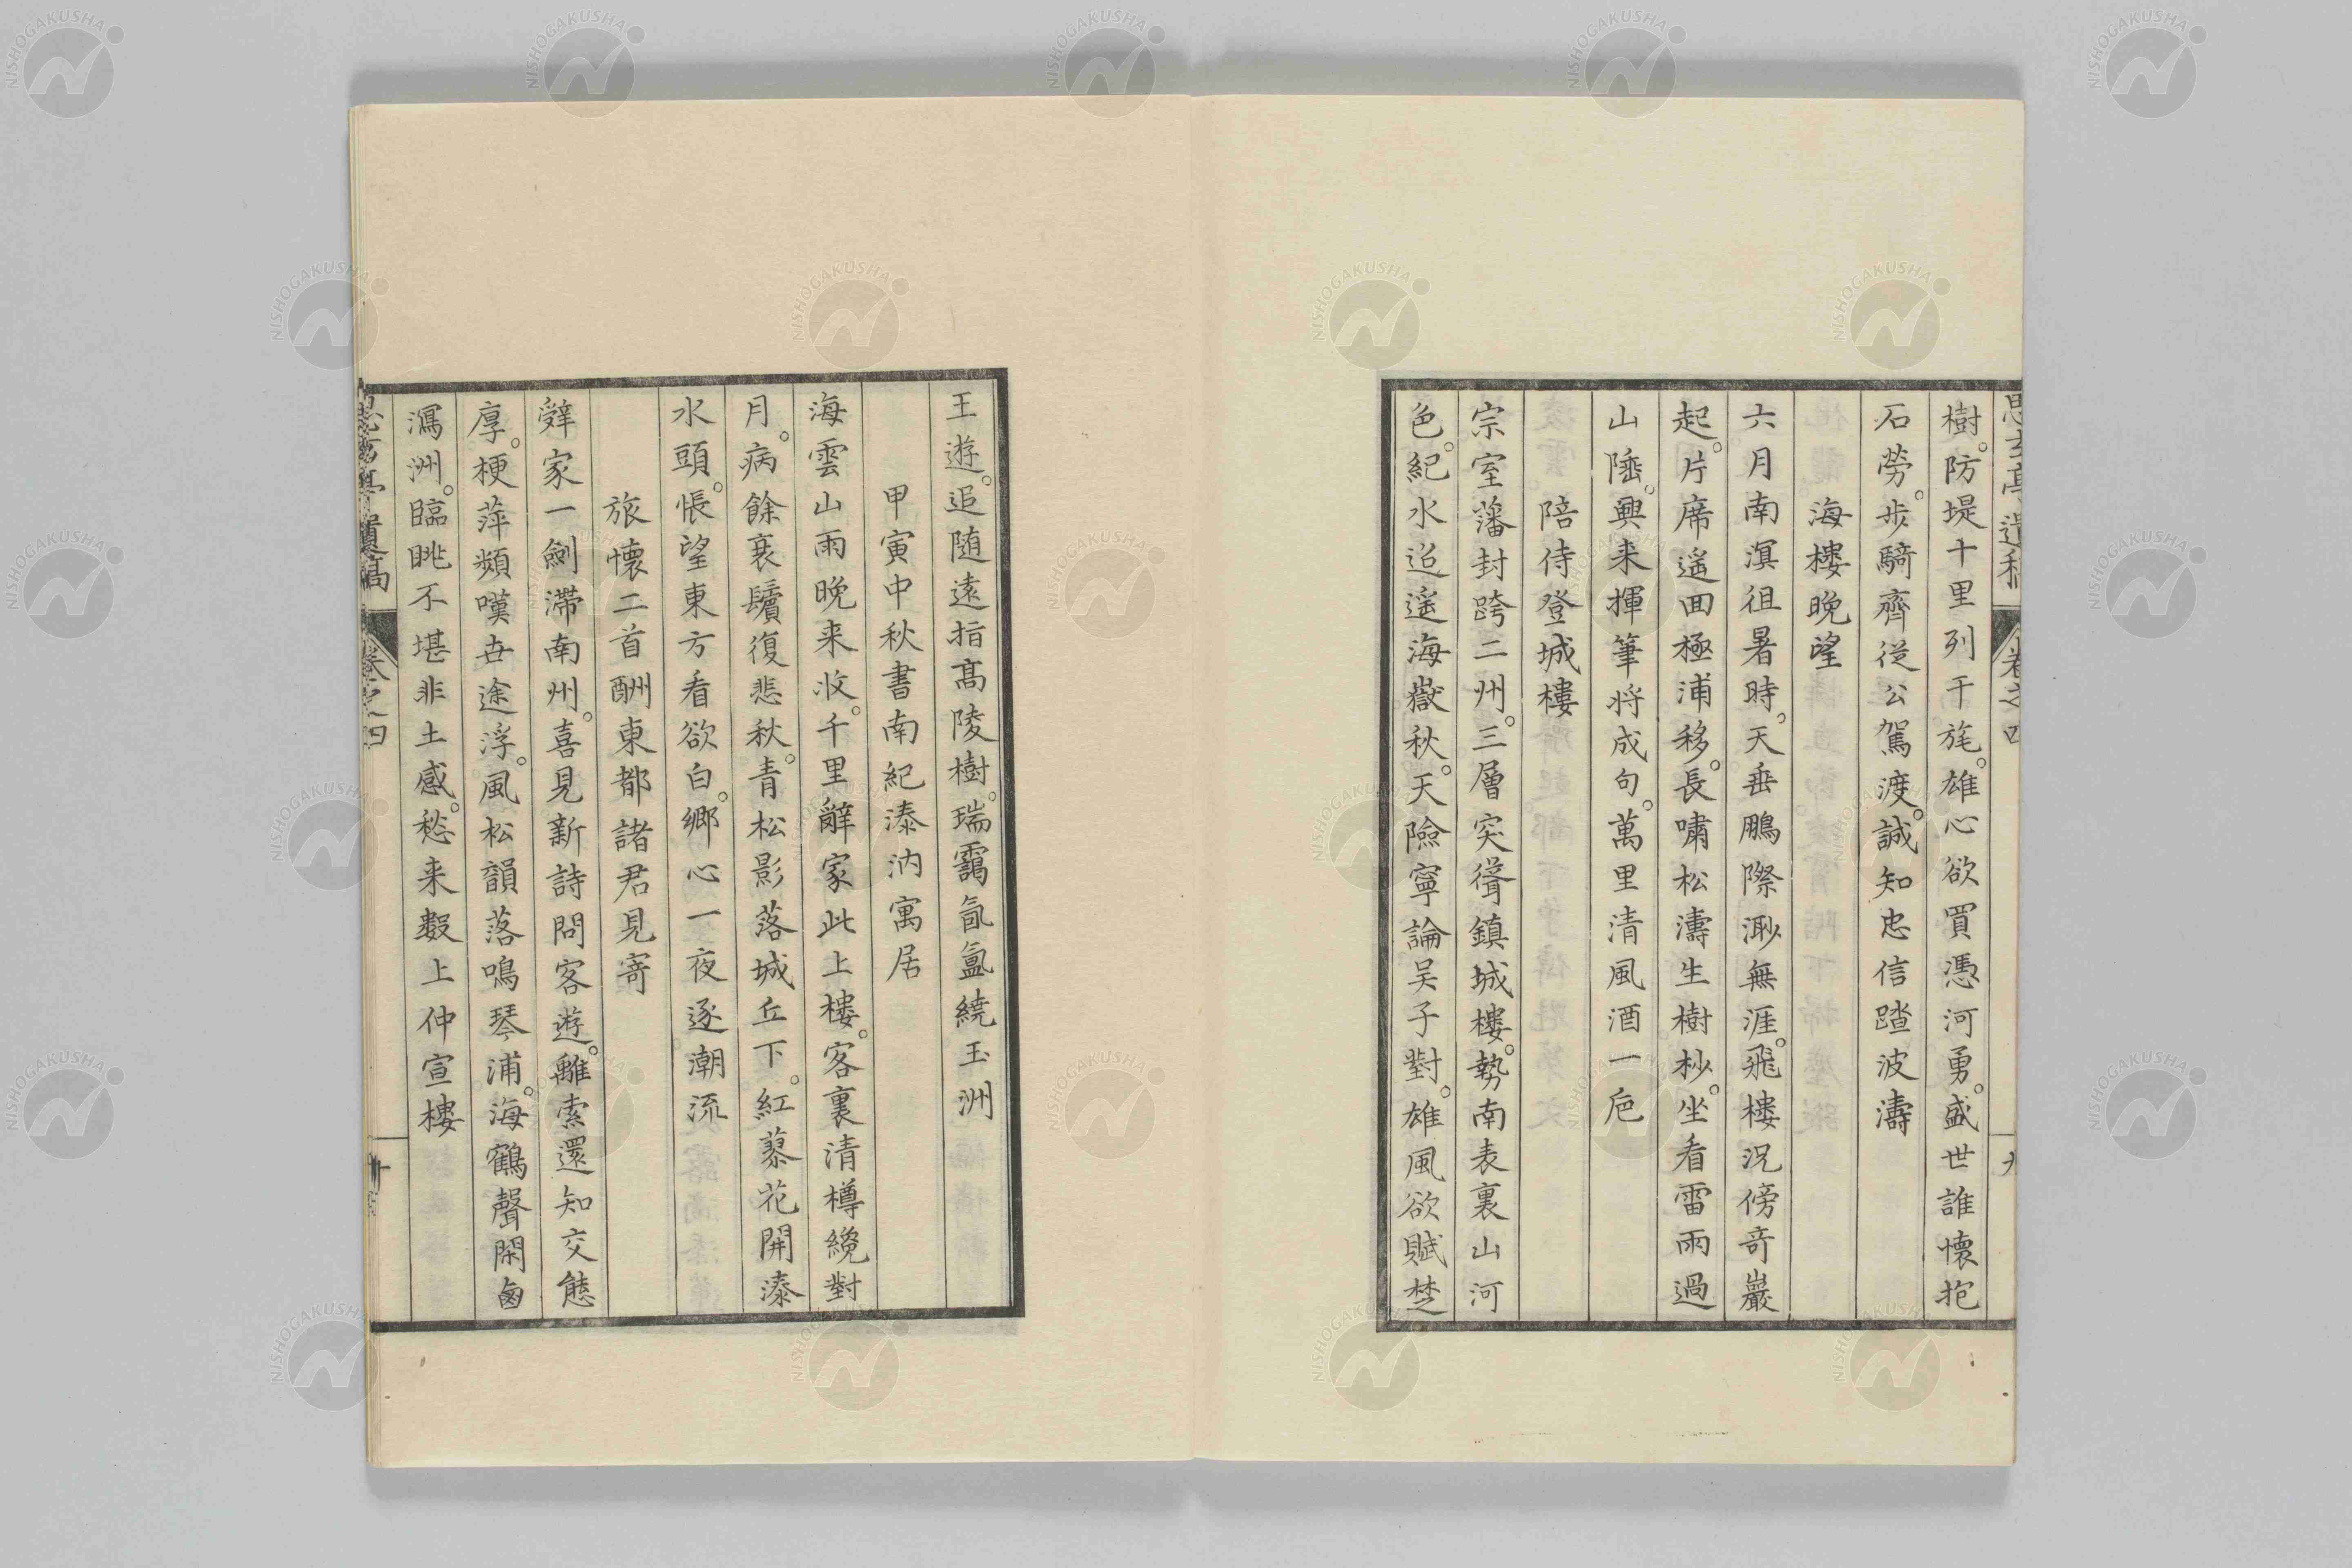 樹。防堤十里列干旄。雄心欲買憑河勇。盛世誰懷抱
石勞。步騎齊從公駕渡。誠知忠信踏波濤
海樓晚望
六月南溟徂暑時。天垂鵬際渺無涯。飛樓況傍奇巖
起。片席遙回極浦移。長嘯松濤生樹杪。坐看雷雨過
山陲。興来揮筆将成句。萬里清風酒一巵
陪侍登城樓
宗室藩封跨二州。三層突聳鎮城樓。勢南表裏山河
色。紀水迢遙海嶽秋。天險寧論吴子對。雄風欲賦楚
王遊。追随遠指髙陵樹。瑞靄氤氳繞玉洲
甲寅中秋書南紀湊汭寓居
海雲山雨晚来收。千里辭家此上樓。客裏清樽纔對
月。病餘衰鬢復悲秋。青松影落城丘下。紅蓼花開湊
水頭。悵望東方看欲白。鄉心一夜逐潮流
旅懷二首酬東都諸君見寄
辤家一劍滯南州。喜見新詩問客遊。離索還知交態
厚。梗萍頻嘆世途浮。風松韻落鳴琴浦。海鶴聲閑鹵
潟洲。臨眺不堪非土感。愁来數上仲宣樓
卷之四